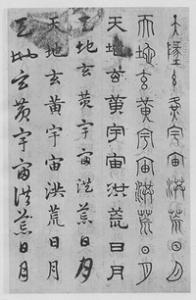 天墬玄黃宇宙洪荒日月
天地玄黃宇宙洪荒日月
天地玄黃宇宙洪荒日月
天地玄黃宇宙洪荒日月
天地玄黃宇宙洪荒日月
天地玄黃宇宙洪荒日月